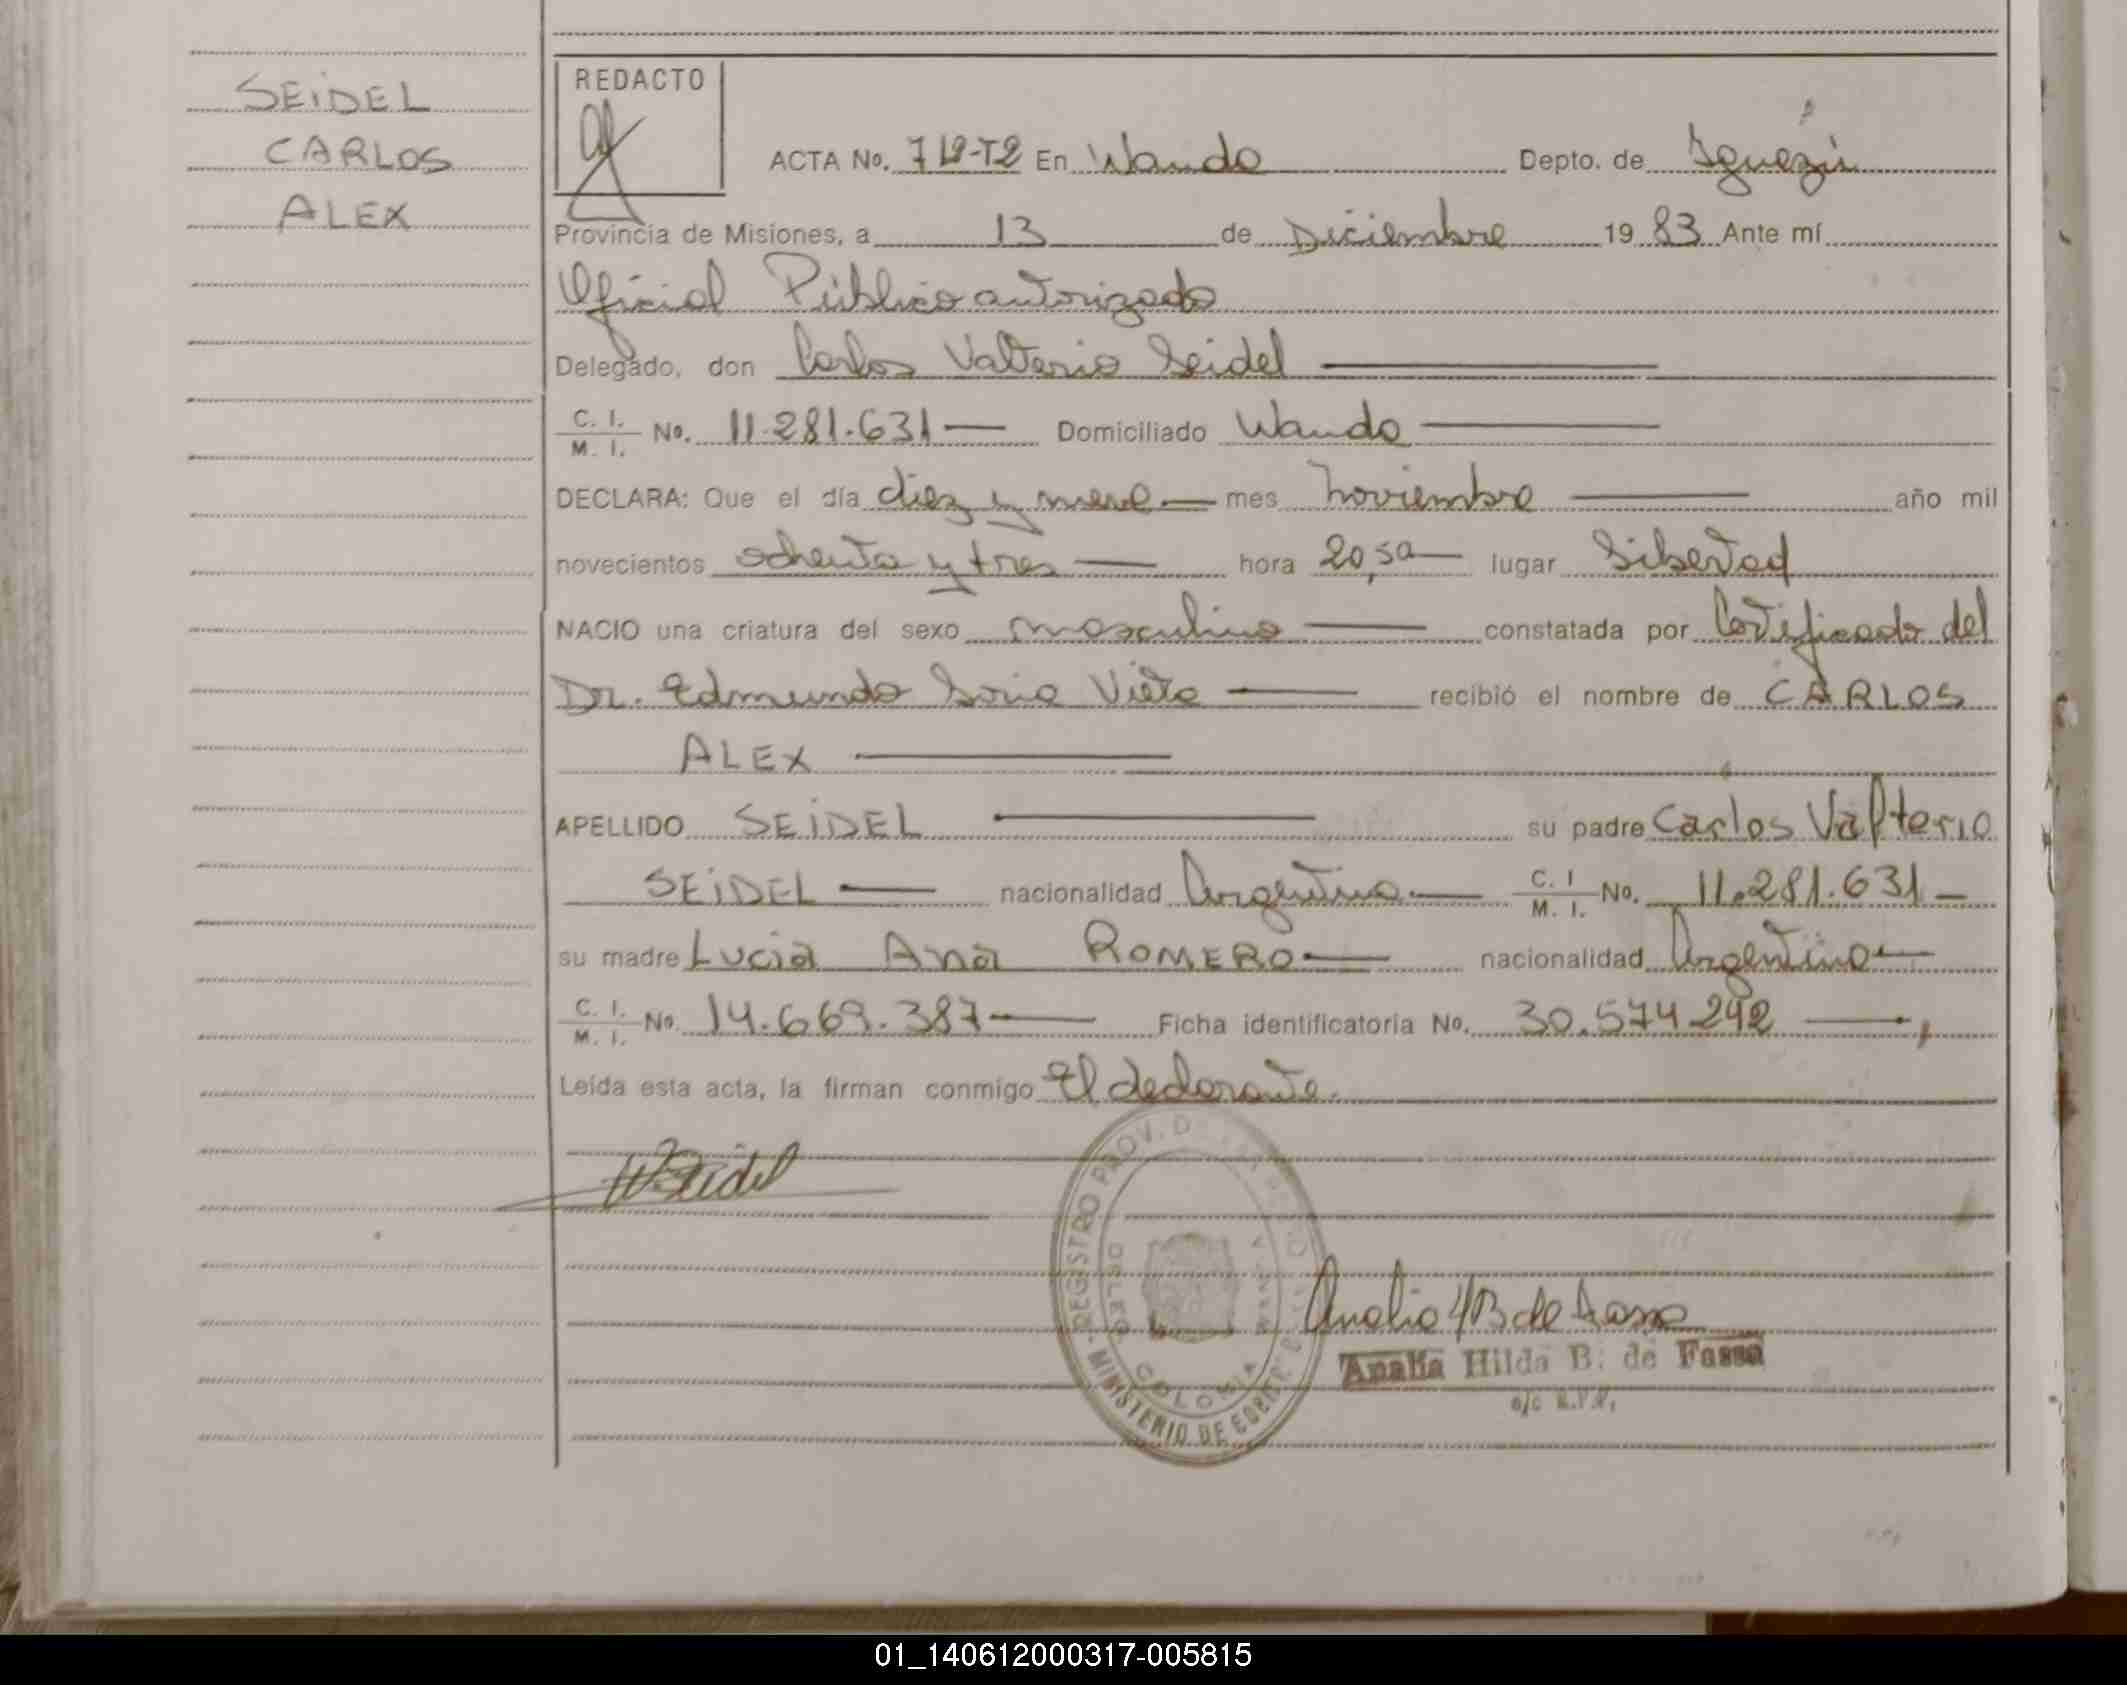 SEIDEL
CARLOS
ALEX
REDACTO
ACTA No. 719-T2 En Wanda Depto. de Iguazú
Provincia de Misiones, a 13 de Diciembre 19 83 Ante mí
Oficial Público autorizado
Delegado, don Carlos Valterio Seidel
C. I. / M. I. No. 11.281.631 Domiciliado Wanda
DECLARA: Que el día diez y nueve mes noviembre año mil
novecientos ochenta y tres hora 20,50 lugar Libertad
NACIO una criatura del sexo masculino constatada por Certificado del
Dr. Edmundo Soria Vieta recibió el nombre de CARLOS
ALEX
APELLIDO SEIDEL su padre Carlos Valterio
SEIDEL nacionalidad Argentina C. I / M. I. No. 11.281.631
su madre Lucia Ana ROMERO nacionalidad Argentina
C. I. / M. I. No. 14.669.387 Ficha identificatoria No. 30.574.292
Leída esta acta, la firman conmigo El declarante.
W Seidel
REGISTRO PROV. D
DELEG
COLONIA WANDA
MINISTERIO DE GOBNO.
Analia H B de Fassa
Analía Hilda B. de Fassa
01_140612000317-005815